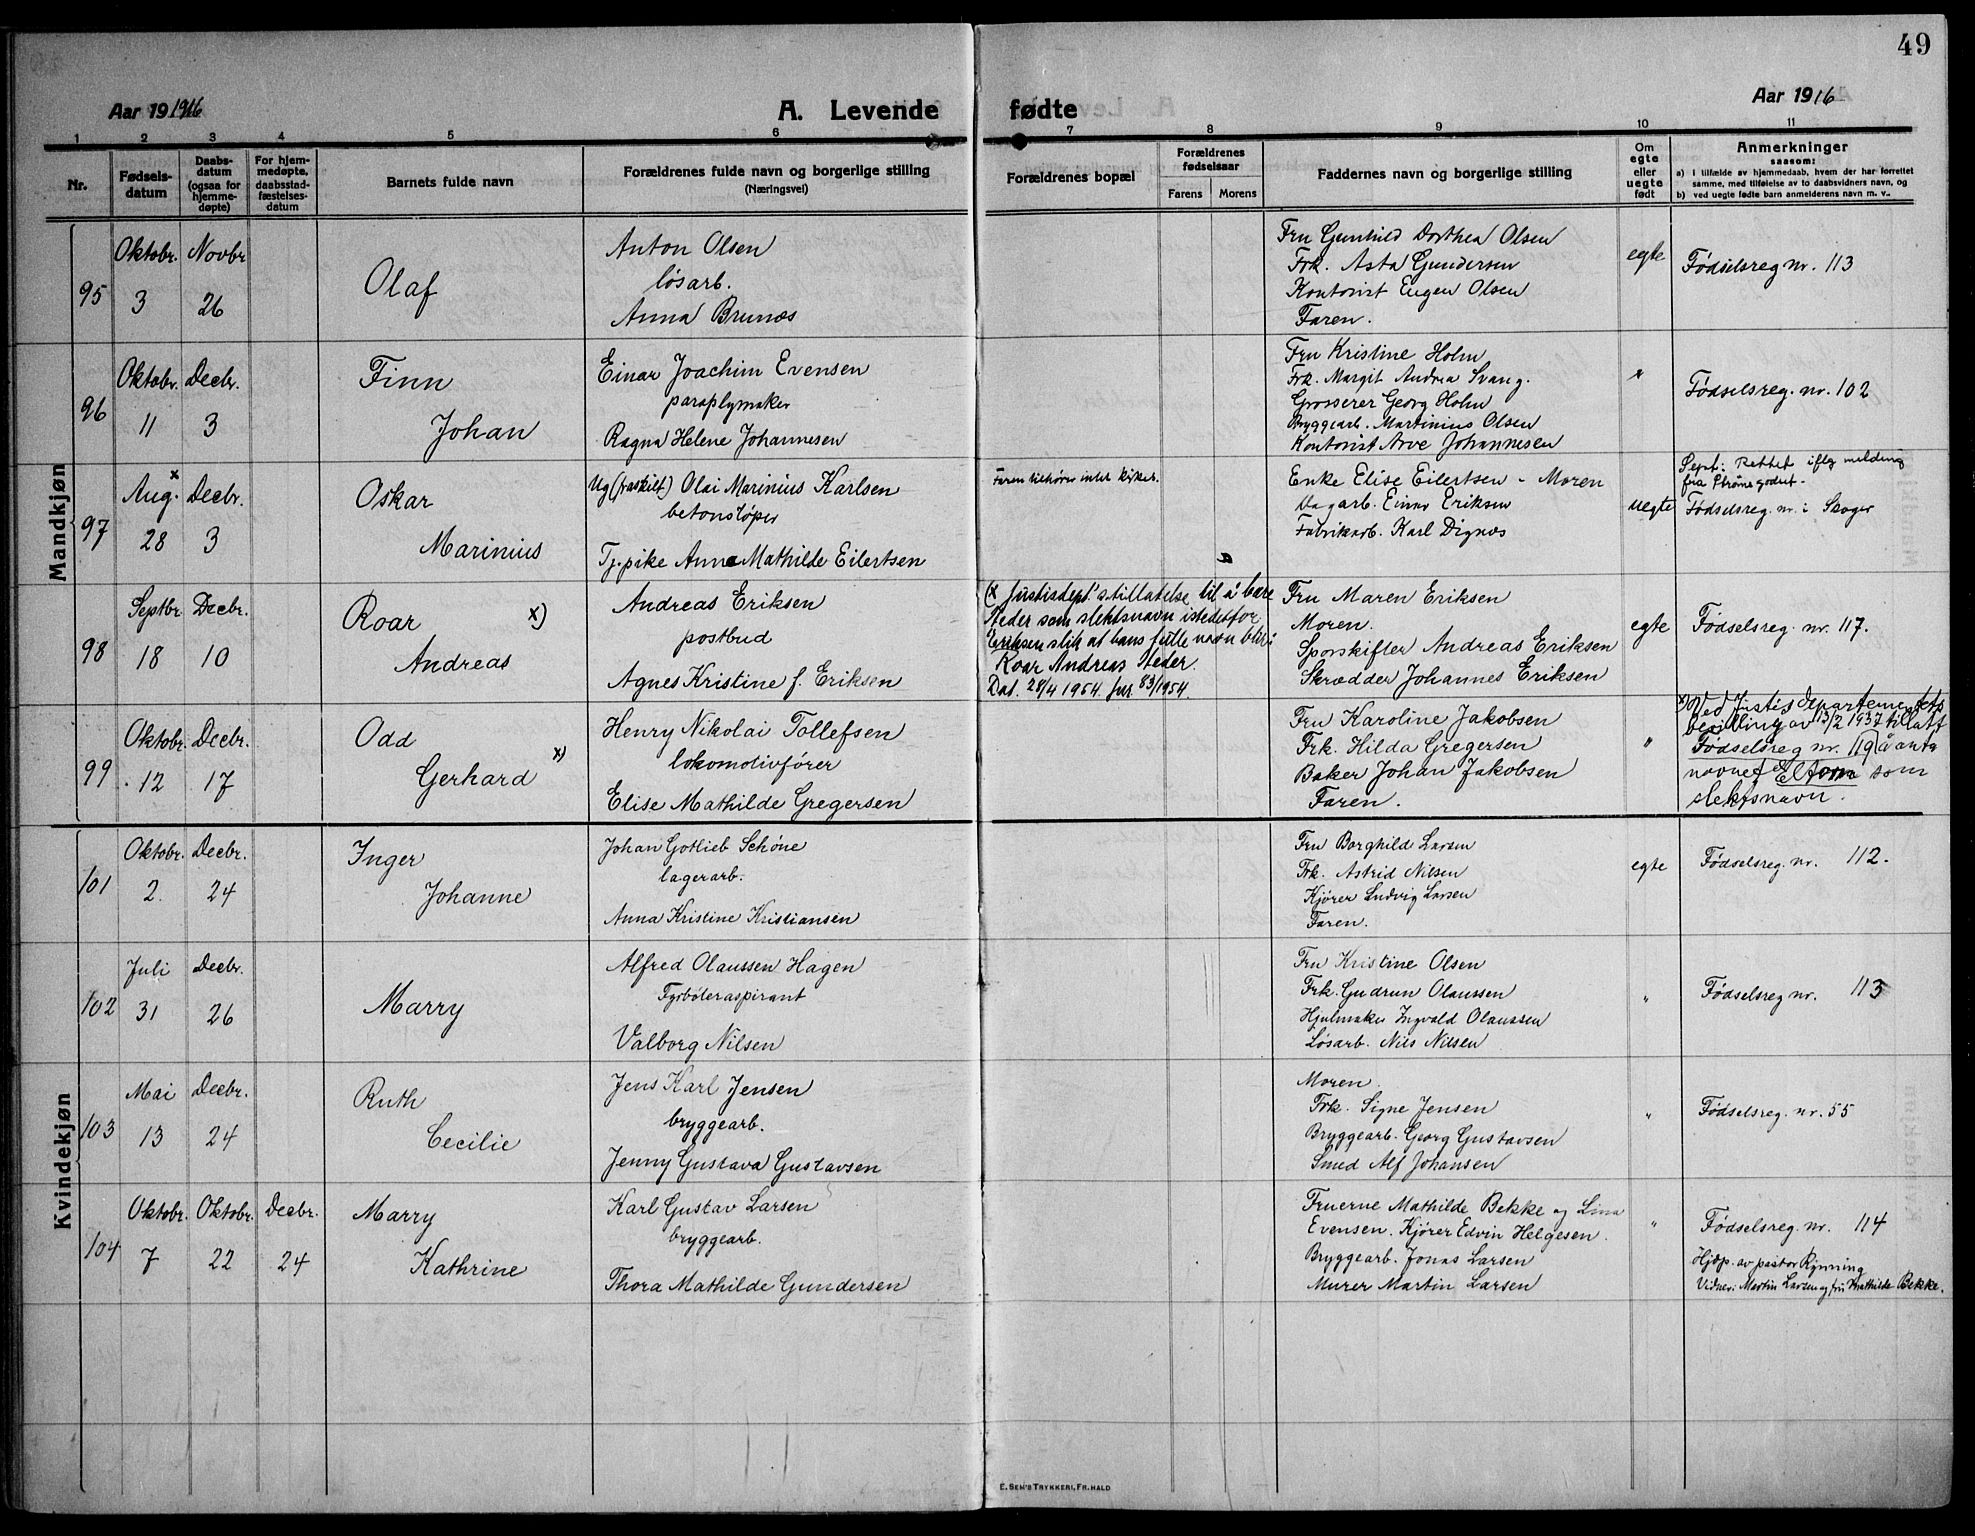 49
Aar 1916
A. Levende fødte
Aar 1916
1 2 3 4 5 6 7 8 9 10 11
Nr.
Fødselsdatum
Daabsdatum (ogsaa for hjemmedøpte)
For hjemmedøpte, daabsstadfæstelsesdatum
Barnets fulde navn
Forældrenes fulde navn og borgerlige stilling
(Næringsvei)
Forældrenes bopæl
Forældrenes fødselsaar
Farens Morens
Faddernes navn og borgerlige stilling
Om egte eller uegte født
Anmerkninger
saasom:
a) I tilfælde av hjemmedaab, hvem der har forrettet
samme, med tilføielse av to daabsvidners navn, og
b) ved uegte fødte barn anmelderens navn m. v.
Mandkjøn
95
Oktobr. 3
Novbr 26
Olaf
Anton Olsen
løsarb.
Anna Brunæs
Fru Gunhild Dorthea Olsen
Frk. Asta Gundersen
Kontorist Eugen Olsen
Faren.
egte
Fødselsreg nr. 113
96
Oktobr. 11
Decbr. 3
Finn
Johan
Einar Joachim Evensen
paraplymaker
Ragna Helene Johannesen
Fru Kristine Holm
Frk. Margit Andrea Svang.
Grosserer Georg Holm
Bryggearb. Martinius Olsen
Kontorist Arve Johannesen
"
Fødselsreg. nr. 102
97
Aug. x 28
Decbr. 3
Oskar
Marinius
Ug (fraskilt) Olai Marinius Karlsen
betonstøper
Tj.pike Anna Mathilde Eilertsen
Faren tilhører intet kirkes.
Enke Elise Eilertsen - Moren
Einar Eriksen
Fabrikarb. Karl Dignæs
uegte
Sept: Rettet iflg melding
fra Strømsgodset.
Fødselsreg. nr. i Skoger
98
Septbr. 18
Decbr. 10
Roar x)
Andreas
Andreas Eriksen
postbud
Agnes Kristine f. Eriksen
(x Justisdept's tillatelse til å bære
Steder som slektsnavn istedetfor
Eriksen slik at hans fulle navn blir:
Roar Andreas Steder.
Dat. 28/4 1954. Jnr 83/1954.
Fru Maren Eriksen
Moren.
Sporskifter Andreas Eriksen
Skrædder Johannes Eriksen
egte
Fødselsreg. nr. 117.
99
Oktobr. 12
Decbr. 17
Odd
Gerhard x)
Henry Nikolai Tollefsen
lokomotivfører
Elise Mathilde Gregersen
Fru Karoline Jakobsen
Frk. Hilda Gregersen
Baker Johan Jakobsen
Faren.
"
x) Ved Justisdepartementets
bevilling av 13/2 1937 tillatt
Fødselsreg nr. 119 å anta
navnet Eltom som
slektsnavn.
Kvindekjøn
101
Oktobr. 2.
Decbr. 24
Inger
Johanne
Johan Gotlieb Schøne
lagerarb.
Anna Kristine Kristiansen
Fru Borghild Larsen
Frk. Astrid Nilsen
Kjører Ludvig Larsen
Faren.
egte
Fødselsreg. nr. 112.
102
Juli 31
Decbr. 26
Marry
Alfred Olaussen Hagen
Fyrbøteraspirant
Valborg Nilsen
Fru Kristine Olsen
Frk. Gudrun Olaussen
Hjulmaker Ingvald Olaussen
Løsarb. Nils Nilsen
"
Fødselsreg nr. 113
103
Mai 13
Decbr. 24
Ruth
Cecilie
Jens Karl Jensen
bryggearb.
Jenny Gustava Gustavsen
Moren.
Frk. Signe Jensen
Bryggearb. Georg Gustavsen
Smed Alf Johansen
"
Fødselsreg. nr. 55
104
Oktobr. 7
Oktobr. 22
Decbr. 24
Marry
Kathrine
Karl Gustav Larsen
bryggearb.
Thora Mathilde Gundersen
Fruerne Mathilde Bekke og Lina
Evensen. Kjører Edvin Helgesen.
Bryggearb. Jonas Larsen
Murer Martin Larsen
"
Fødselsreg nr. 114
Hjdp. av pastor Rynning
Vidner: Martin Larsen og fru Mathilde Bekke.
E. Sem's Trykkeri, Fr.hald